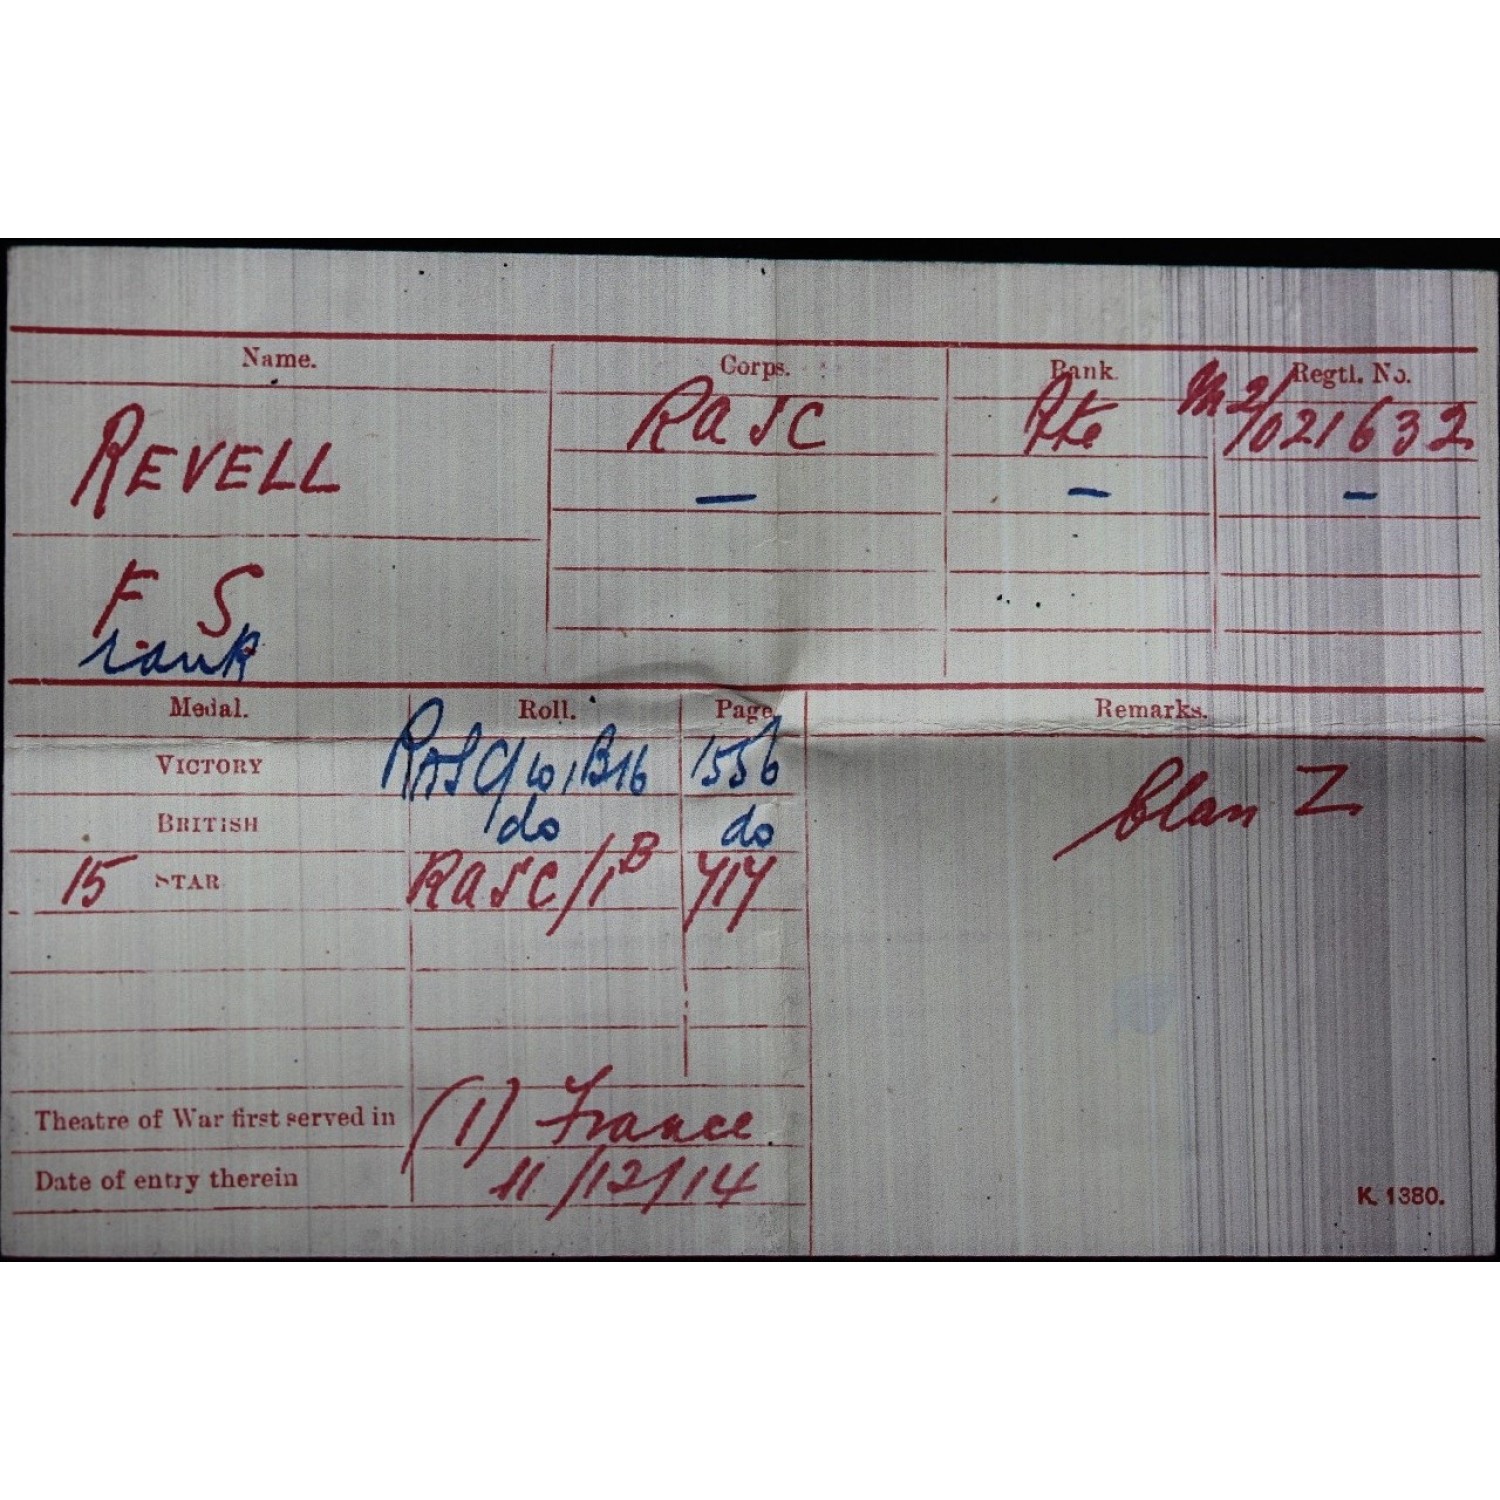 Name. Corps. Rank. Regtl. No.
REVELL RASC Pte M2/021632
— — —
F S
rank
Medal. Roll. Page. Remarks.
VICTORY RASC/101B16 1556 Clan Z
BRITISH do do
15 STAR RASC/1B 717
Theatre of War first served in (1) France.
Date of entry therein 11/12/14
K. 1380.